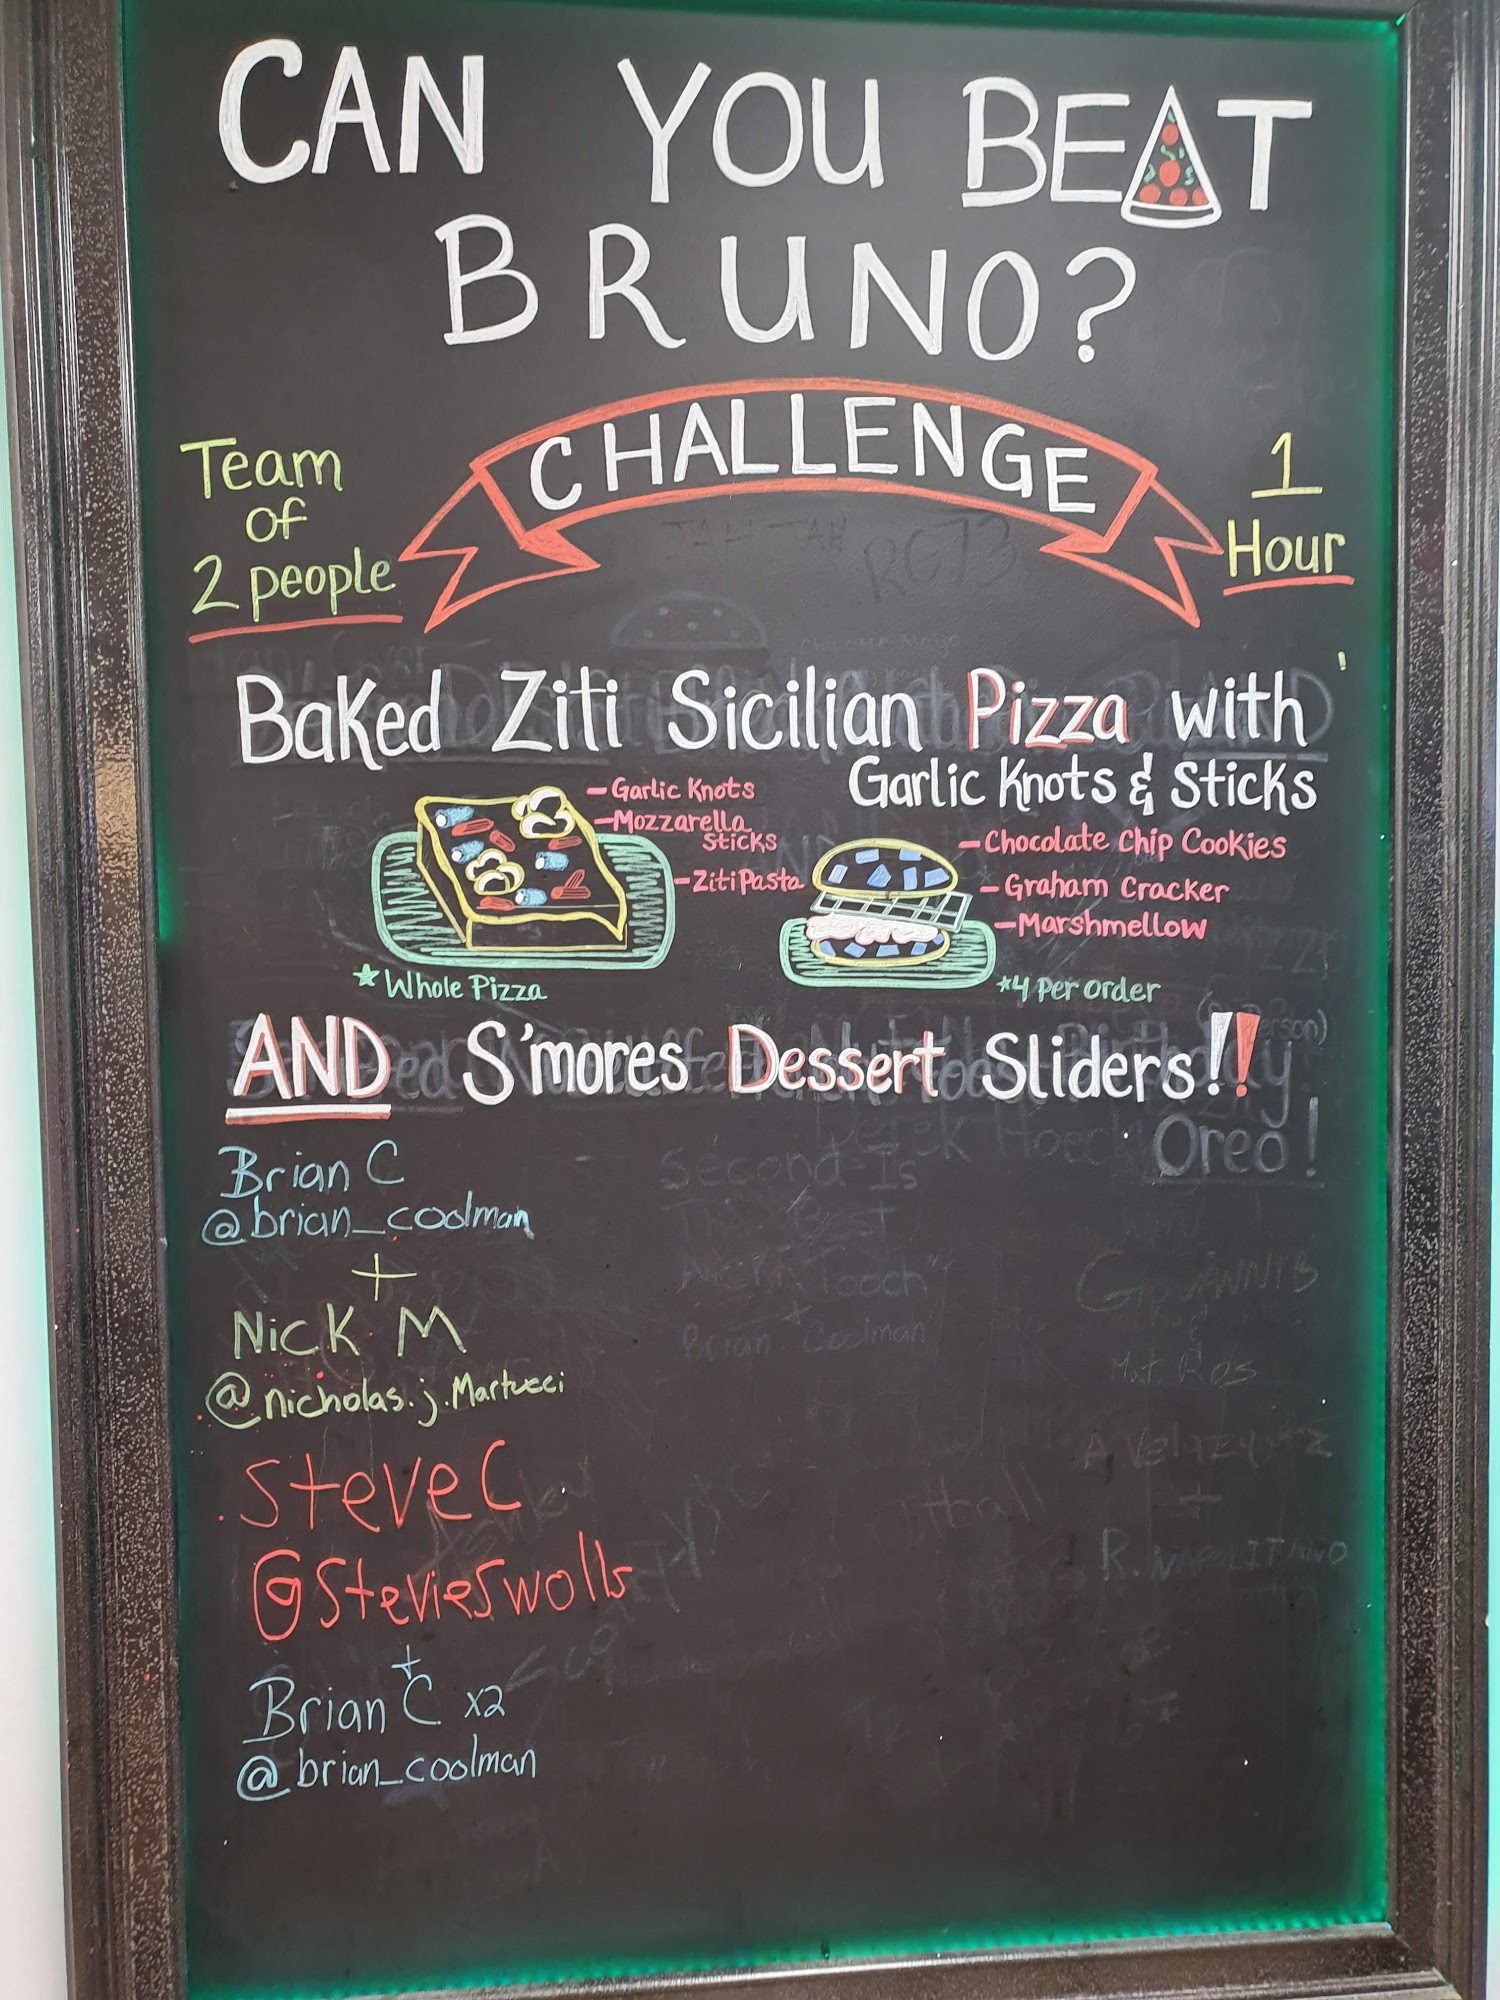 CAN YOU BEAT
BRUNO?
CHALLENGE
Team
of
2 people
1
Hour
Baked Ziti Sicilian Pizza with
Garlic Knots & Sticks
- Garlic Knots
- Mozzarella
Sticks
- Ziti Pasta
* Whole Pizza
- Chocolate Chip Cookies
- Graham Cracker
- Marshmellow
*4 Per Order
AND S'mores Dessert Sliders!!
Oreo!
Brian C
@brian_coolman
+
Nick M
@nicholas.j.Martucci
Steve C
@Stevieswolls
+
Brian C x2
@brian_coolman
Second Is
The Best
Brian Coolman
GIOVANNI B
Mat Ros
A Velazquez
+
R. NAPOLITANO
RG73